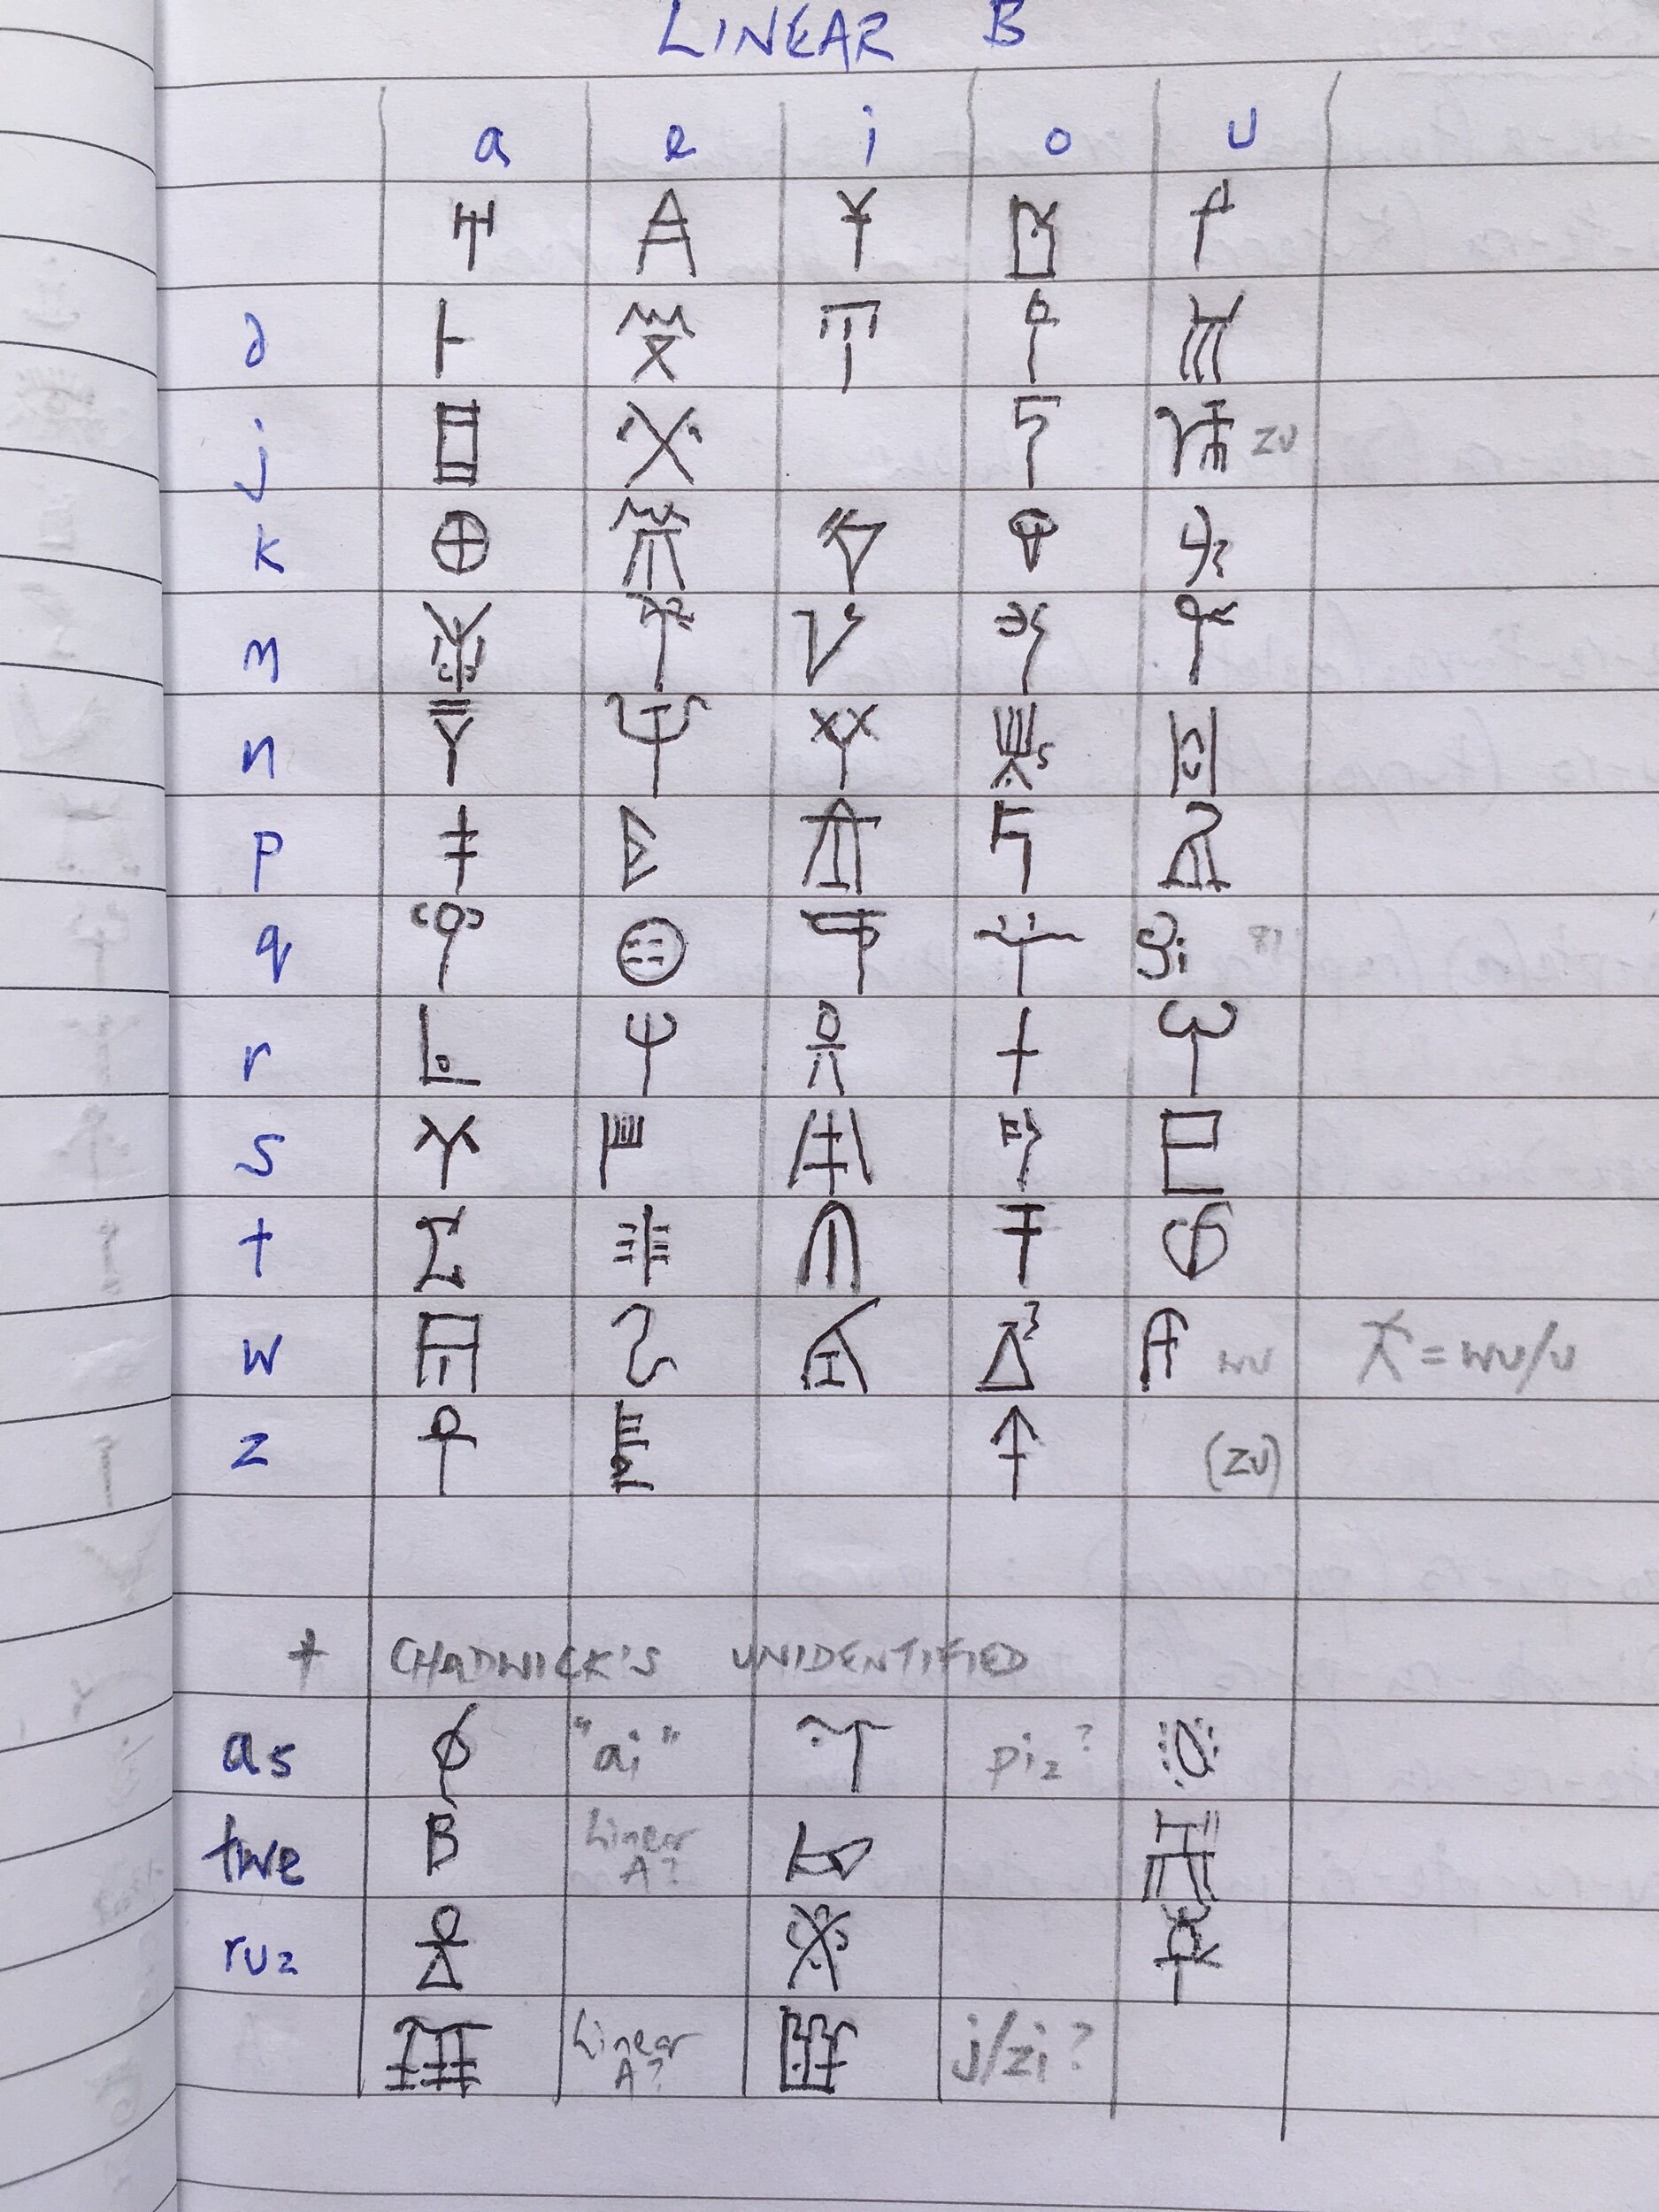 LINEAR B
a e i o u
𐀀 𐀁 𐀂 𐀃 𐀄
d 𐀅 𐀆 𐀇 𐀈 𐀉
j 𐀊 𐀋 𐀍 𐀎 zu
k 𐀏 𐀐 𐀑 𐀒 𐀓
m 𐀔 𐀕 𐀖 𐀗 𐀘
n 𐀙 𐀚 𐀛 𐀜 𐀝
p 𐀞 𐀟 𐀠 𐀡 𐀢
q 𐀣 𐀤 𐀥 𐀦
r 𐀨 𐀩 𐀪 𐀫 𐀬
s 𐀭 𐀮 𐀯 𐀰 𐀱
t 𐀲 𐀳 𐀴 𐀵 𐀶
w 𐀷 𐀸 𐀹 𐀺 wu = wu/u
z 𐀼 𐀽 𐀿 (zu)
+ CHADWICK'S UNIDENTIFIED
as "ai" pi₂?
twe Linear A?
ru₂
Linear A? j/zi?